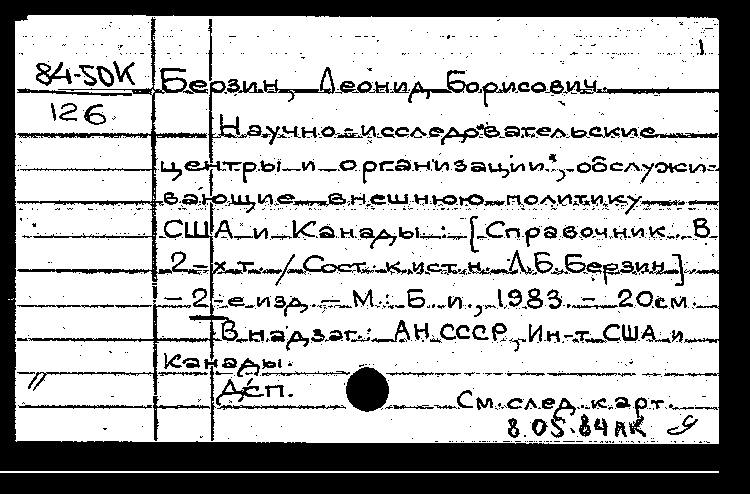 1
84-50К
126
Берзин, Леонид Борисович.
Научно-исследовательские
центры и организации, обслужи-
вающие внешнюю политику
США и Канады : [Справочник. В
2-х т. / Сост. к.ист.н. Л.Б.Берзин]
– 2-е изд. – М.: Б. и., 1983. – 20см.
В надзаг.: АН СССР, Ин-т США и
Канады.
Дсп.
См. след. карт.
8.05.84